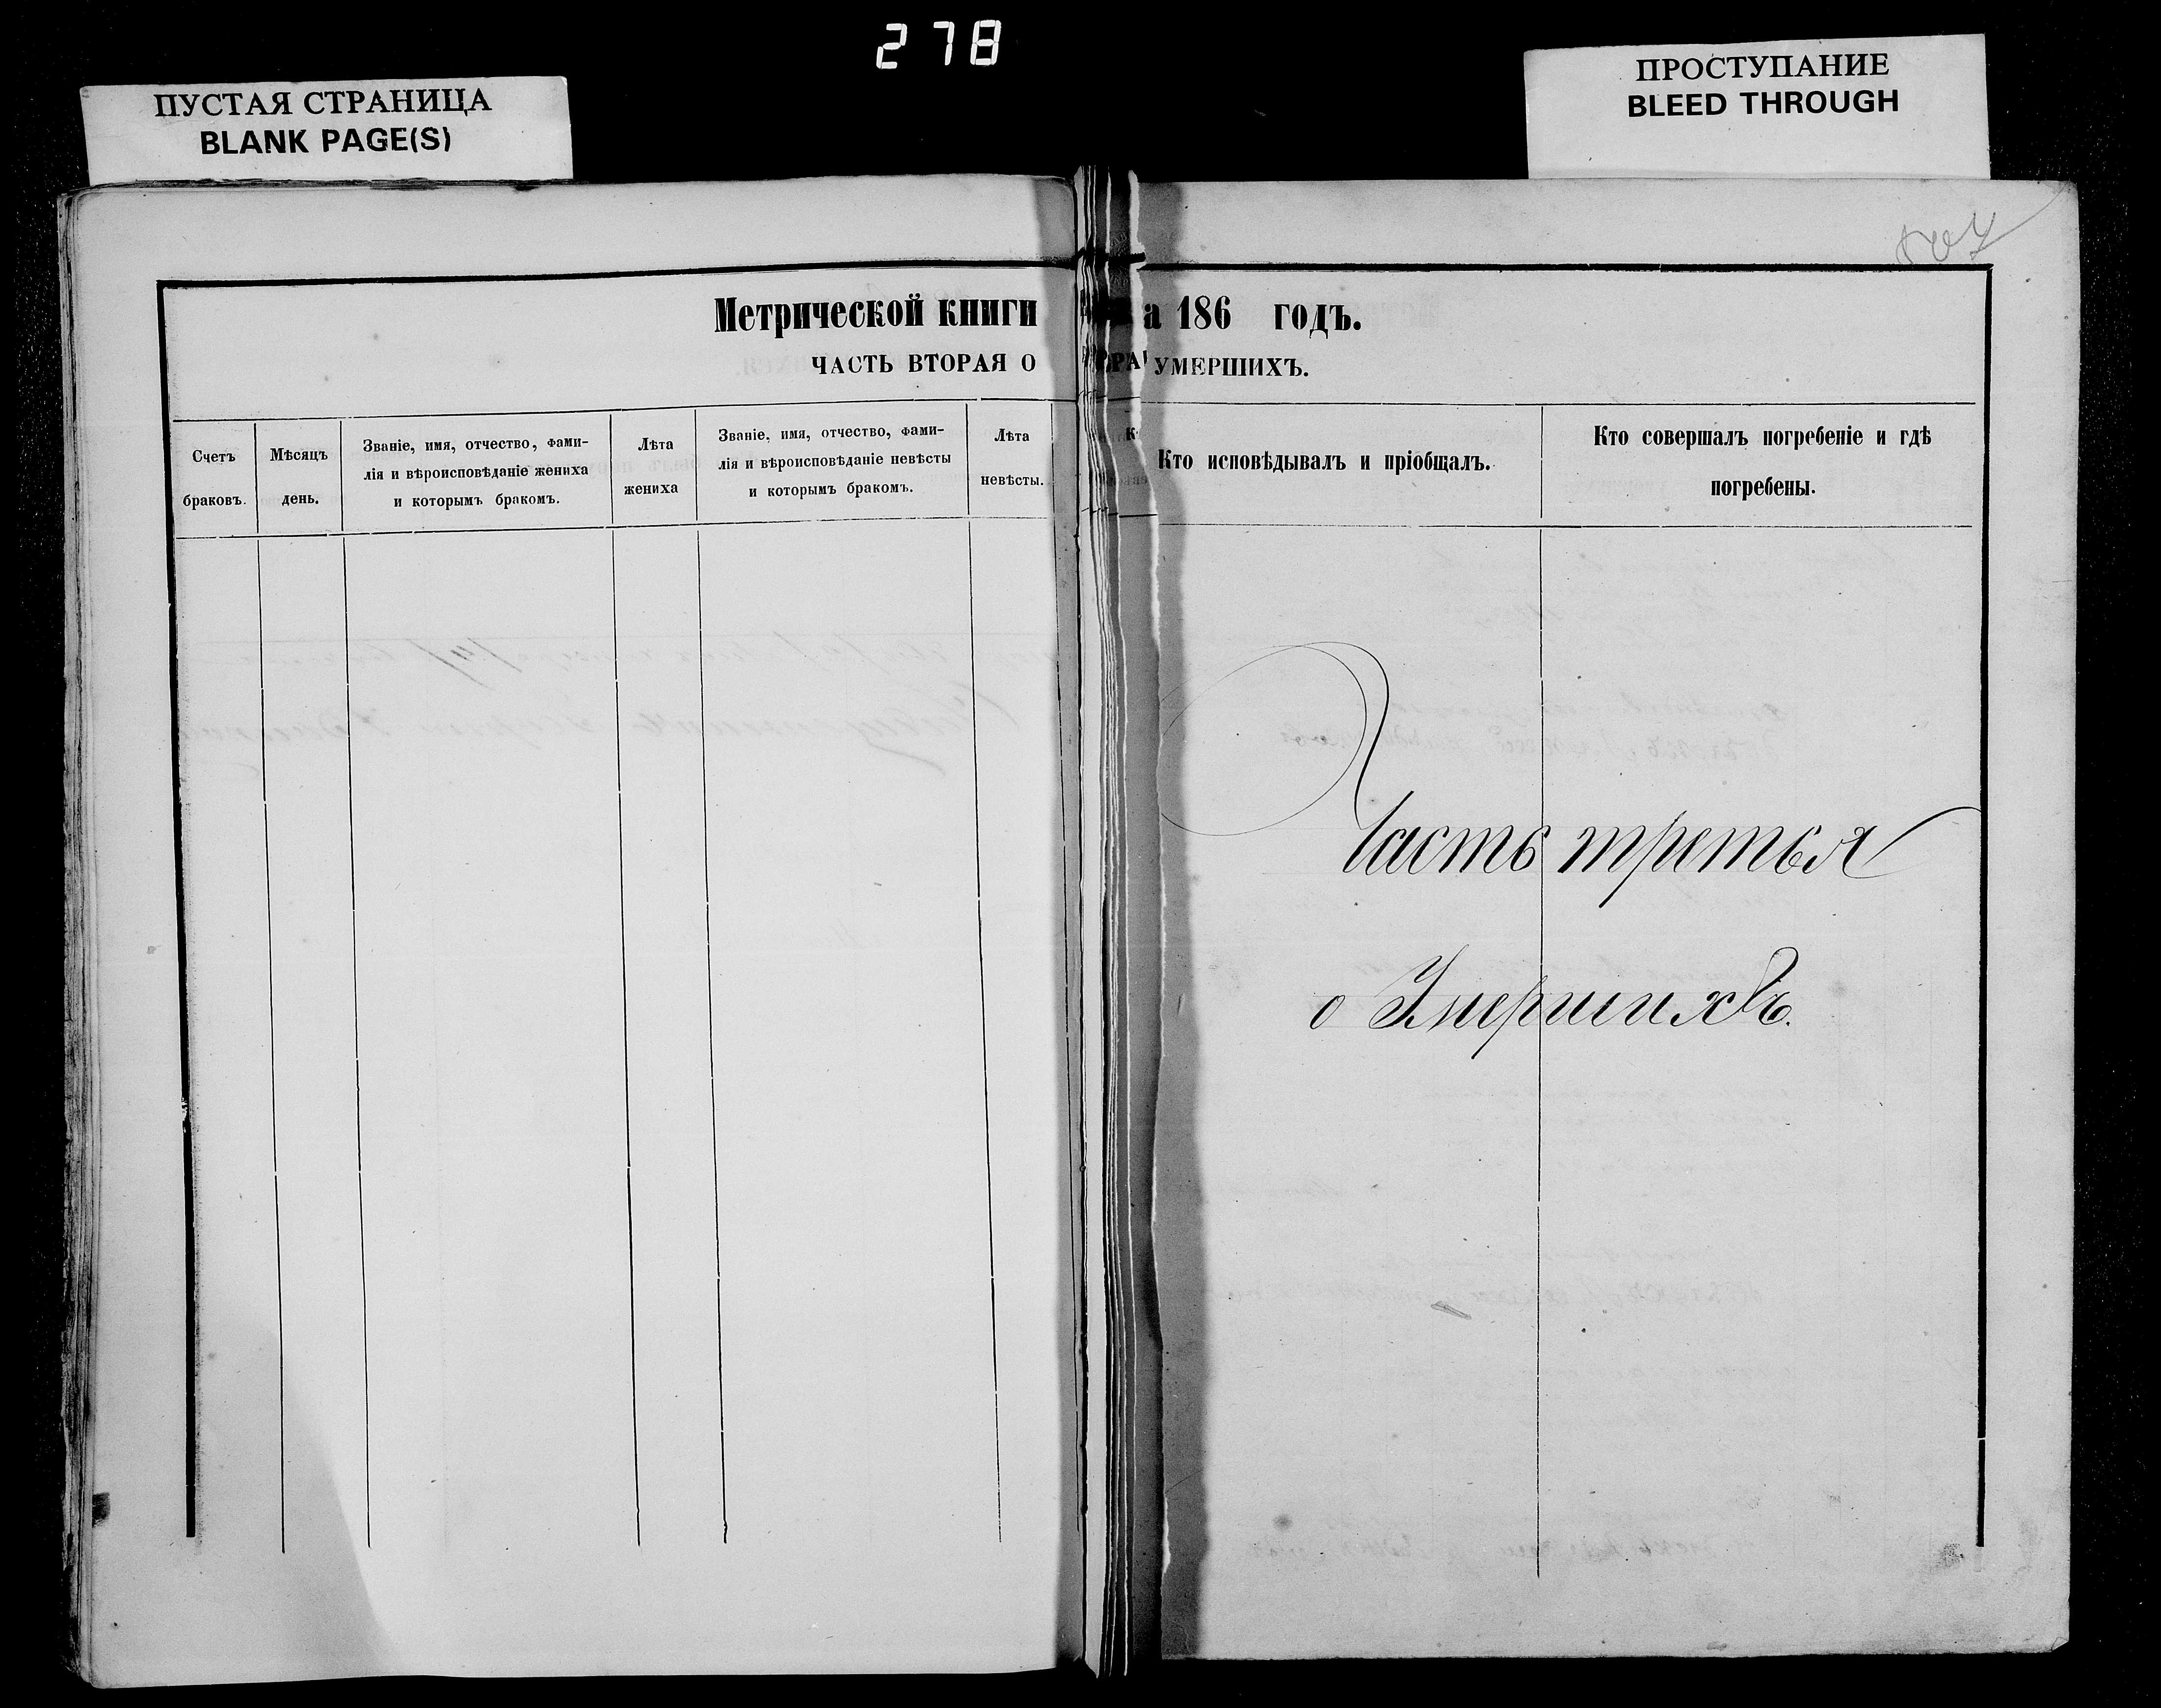 278
ПУСТАЯ СТРАНИЦА
BLANK PAGE(S)
ПРОСТУПАНИЕ
BLEED THROUGH
Метрической книги
ЧАСТЬ ВТОРАЯ О
Счетъ
браковъ.
Мѣсяцъ
день.
Званіе, имя, отчество, фами-
лія и вѣроисповѣданіе жениха
и которымъ бракомъ.
Лѣта
жениха
Званіе, имя, отчество, фами-
лія и вѣроисповѣданіе невѣсты
и которымъ бракомъ.
Лѣта
невѣсты.
а 186 годъ.
УМЕРШИХЪ.
Кто исповѣдывалъ и пріобщалъ.
Кто совершалъ погребеніе и гдѣ
погребены.
Часть третья
о Умершихъ.